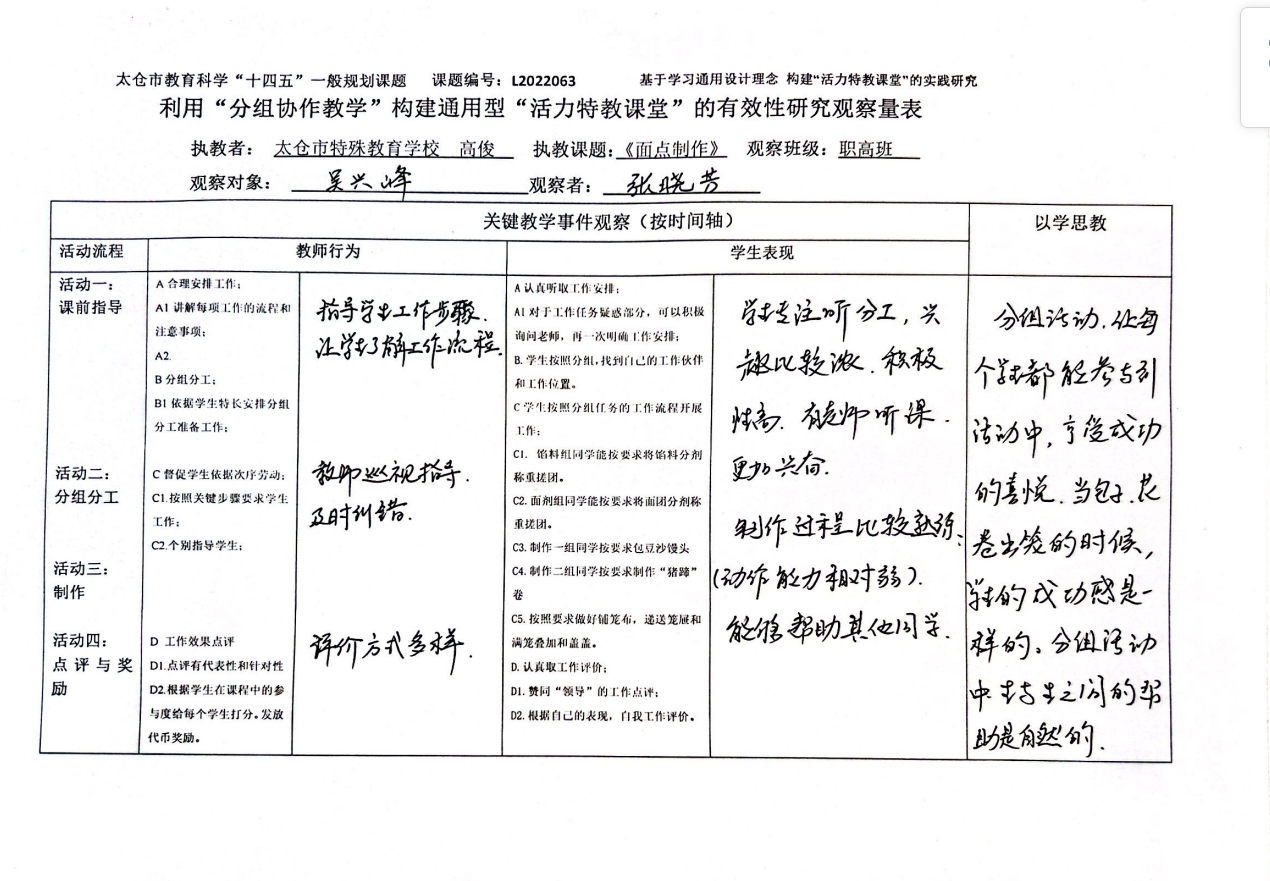 太仓市教育科学“十四五”一般规划课题 课题编号：L2022063 基于学习通用设计理念 构建“活力特教课堂”的实践研究
利用“分组协作教学”构建通用型“活力特教课堂”的有效性研究观察量表
执教者： 太仓市特殊教育学校 高俊 执教课题：《面点制作》 观察班级：职高班
观察对象： 吴兴峰 观察者： 张晓芳
关键教学事件观察（按时间轴）
以学思教
活动流程
教师行为
学生表现
活动一：
课前指导
A 合理安排工作；
A1 讲解每项工作的流程和
注意事项；
A2.
B 分组分工；
B1 依据学生特长安排分组
分工准备工作；
指导学生工作步骤.
让学生了解工作流程.
活动二：
分组分工
C 督促学生依据次序劳动；
C1.按照关键步骤要求学生
工作；
C2.个别指导学生；
教师巡视指导.
及时纠错.
活动三：
制作
活动四：
点评与奖
励
D 工作效果点评
D1.点评有代表性和针对性
D2.根据学生在课程中的参
与度给每个学生打分。发放
代币奖励。
评价方式多样.
A 认真听取工作安排；
A1 对于工作任务疑惑部分，可以积极
询问老师，再一次明确工作安排；
B. 学生按照分组,找到自己的工作伙伴
和工作位置。
C 学生按照分组任务的工作流程开展
工作；
C1. 馅料组同学能按要求将馅料分剂
称重搓团。
C2. 面剂组同学能按要求将面团分剂称
重搓团。
C3. 制作一组同学按要求包豆沙馒头
C4. 制作二组同学按要求制作“猪蹄”
卷
C5. 按照要求做好铺笼布，递送笼屉和
满笼叠加和盖盖。
D. 认真取工作评价；
D1. 赞同“领导”的工作点评；
D2. 根据自己的表现，自我工作评价。
学生专注听分工，兴
趣比较浓. 积极
性高. 有老师听课.
更加兴奋.
制作过程比较熟练;
(动作能力相对弱).
能够帮助其他同学.
分组活动.让每
个学生都能参与到
活动中，享受成功
的喜悦. 当包子.花
卷出笼的时候，
学生的成功感是一
样的。分组活动
中生与生之间的帮
助是自然的.